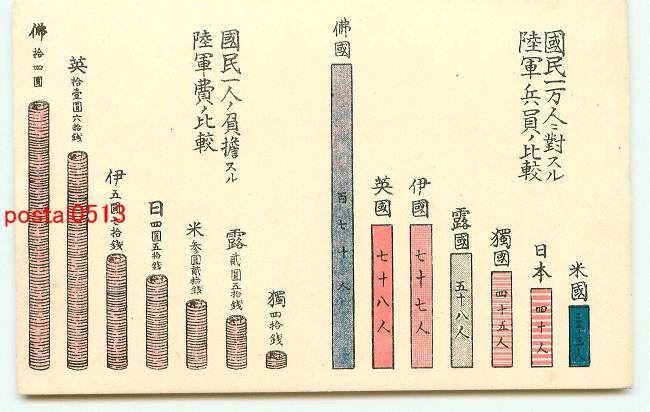 國民一万人ニ對スル
陸軍兵員ノ比較
佛國
百七十人
英國
七十八人
伊國
七十七人
露國
五十八人
獨國
四十五人
日本
四十人
米國
三十三人
國民一人ノ負擔スル
陸軍費ノ比較
佛
拾四圓
英
拾壹圓六拾錢
伊
五圓 拾錢
日
四圓五拾錢
米
參圓貳拾錢
露
貳圓五拾錢
獨
四拾錢
posta0513